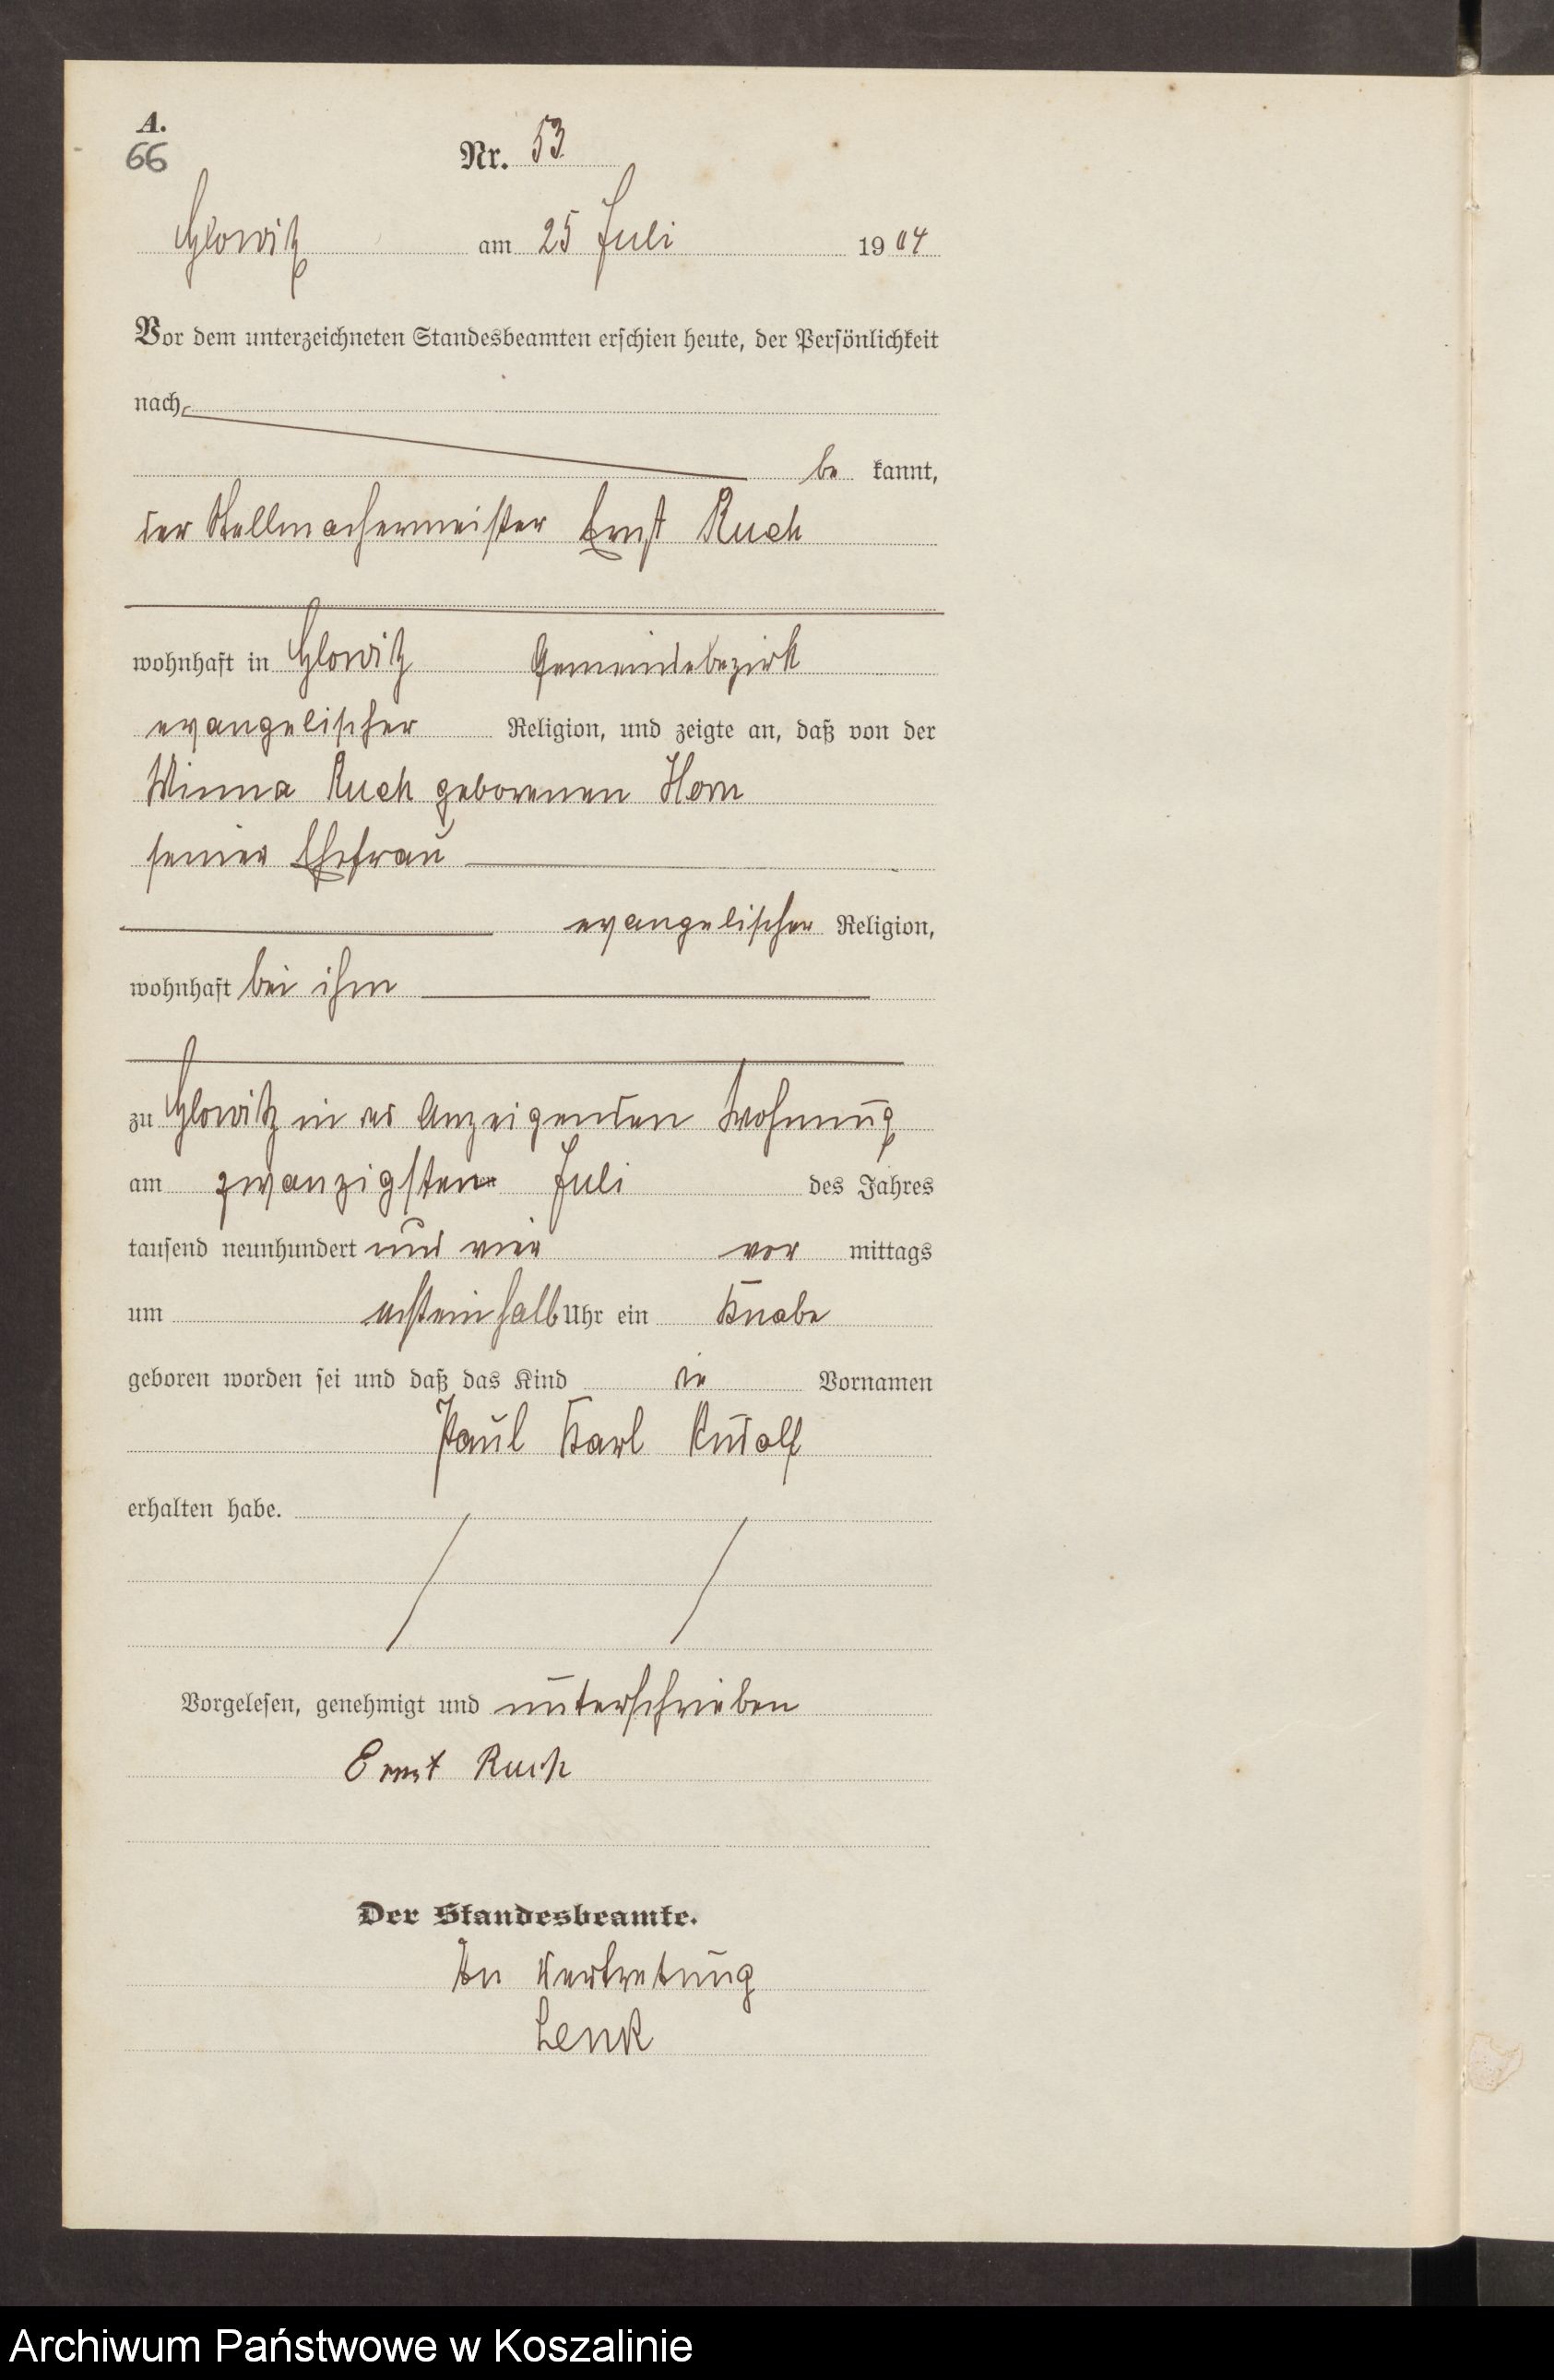 A.
66
Nr. 53
Glowitz am 25 Juli 1904
Vor dem unterzeichneten Standesbeamten erschien heute, der Persönlichkeit
nach
be kannt,
der Stellmachermeister Ernst Ruch
wohnhaft in Glowitz Gemeindebezirk
evangelischer Religion, und zeigte an, daß von der
Minna Ruch geborenen Horn
seiner Ehefrau
evangelischer Religion,
wohnhaft bei ihm
zu Glowitz in des Anzeigenden Wohnung
am zwanzigsten Juli des Jahres
tausend neunhundert und vier vor mittags
um achteinhalb Uhr ein Knabe
geboren worden sei und daß das Kind die Vornamen
Paul Karl Rudolf
erhalten habe.
Vorgelesen, genehmigt und unterschrieben
Ernst Ruch
Der Standesbeamte.
In Vertretung
Lenk
Archiwum Państwowe w Koszalinie